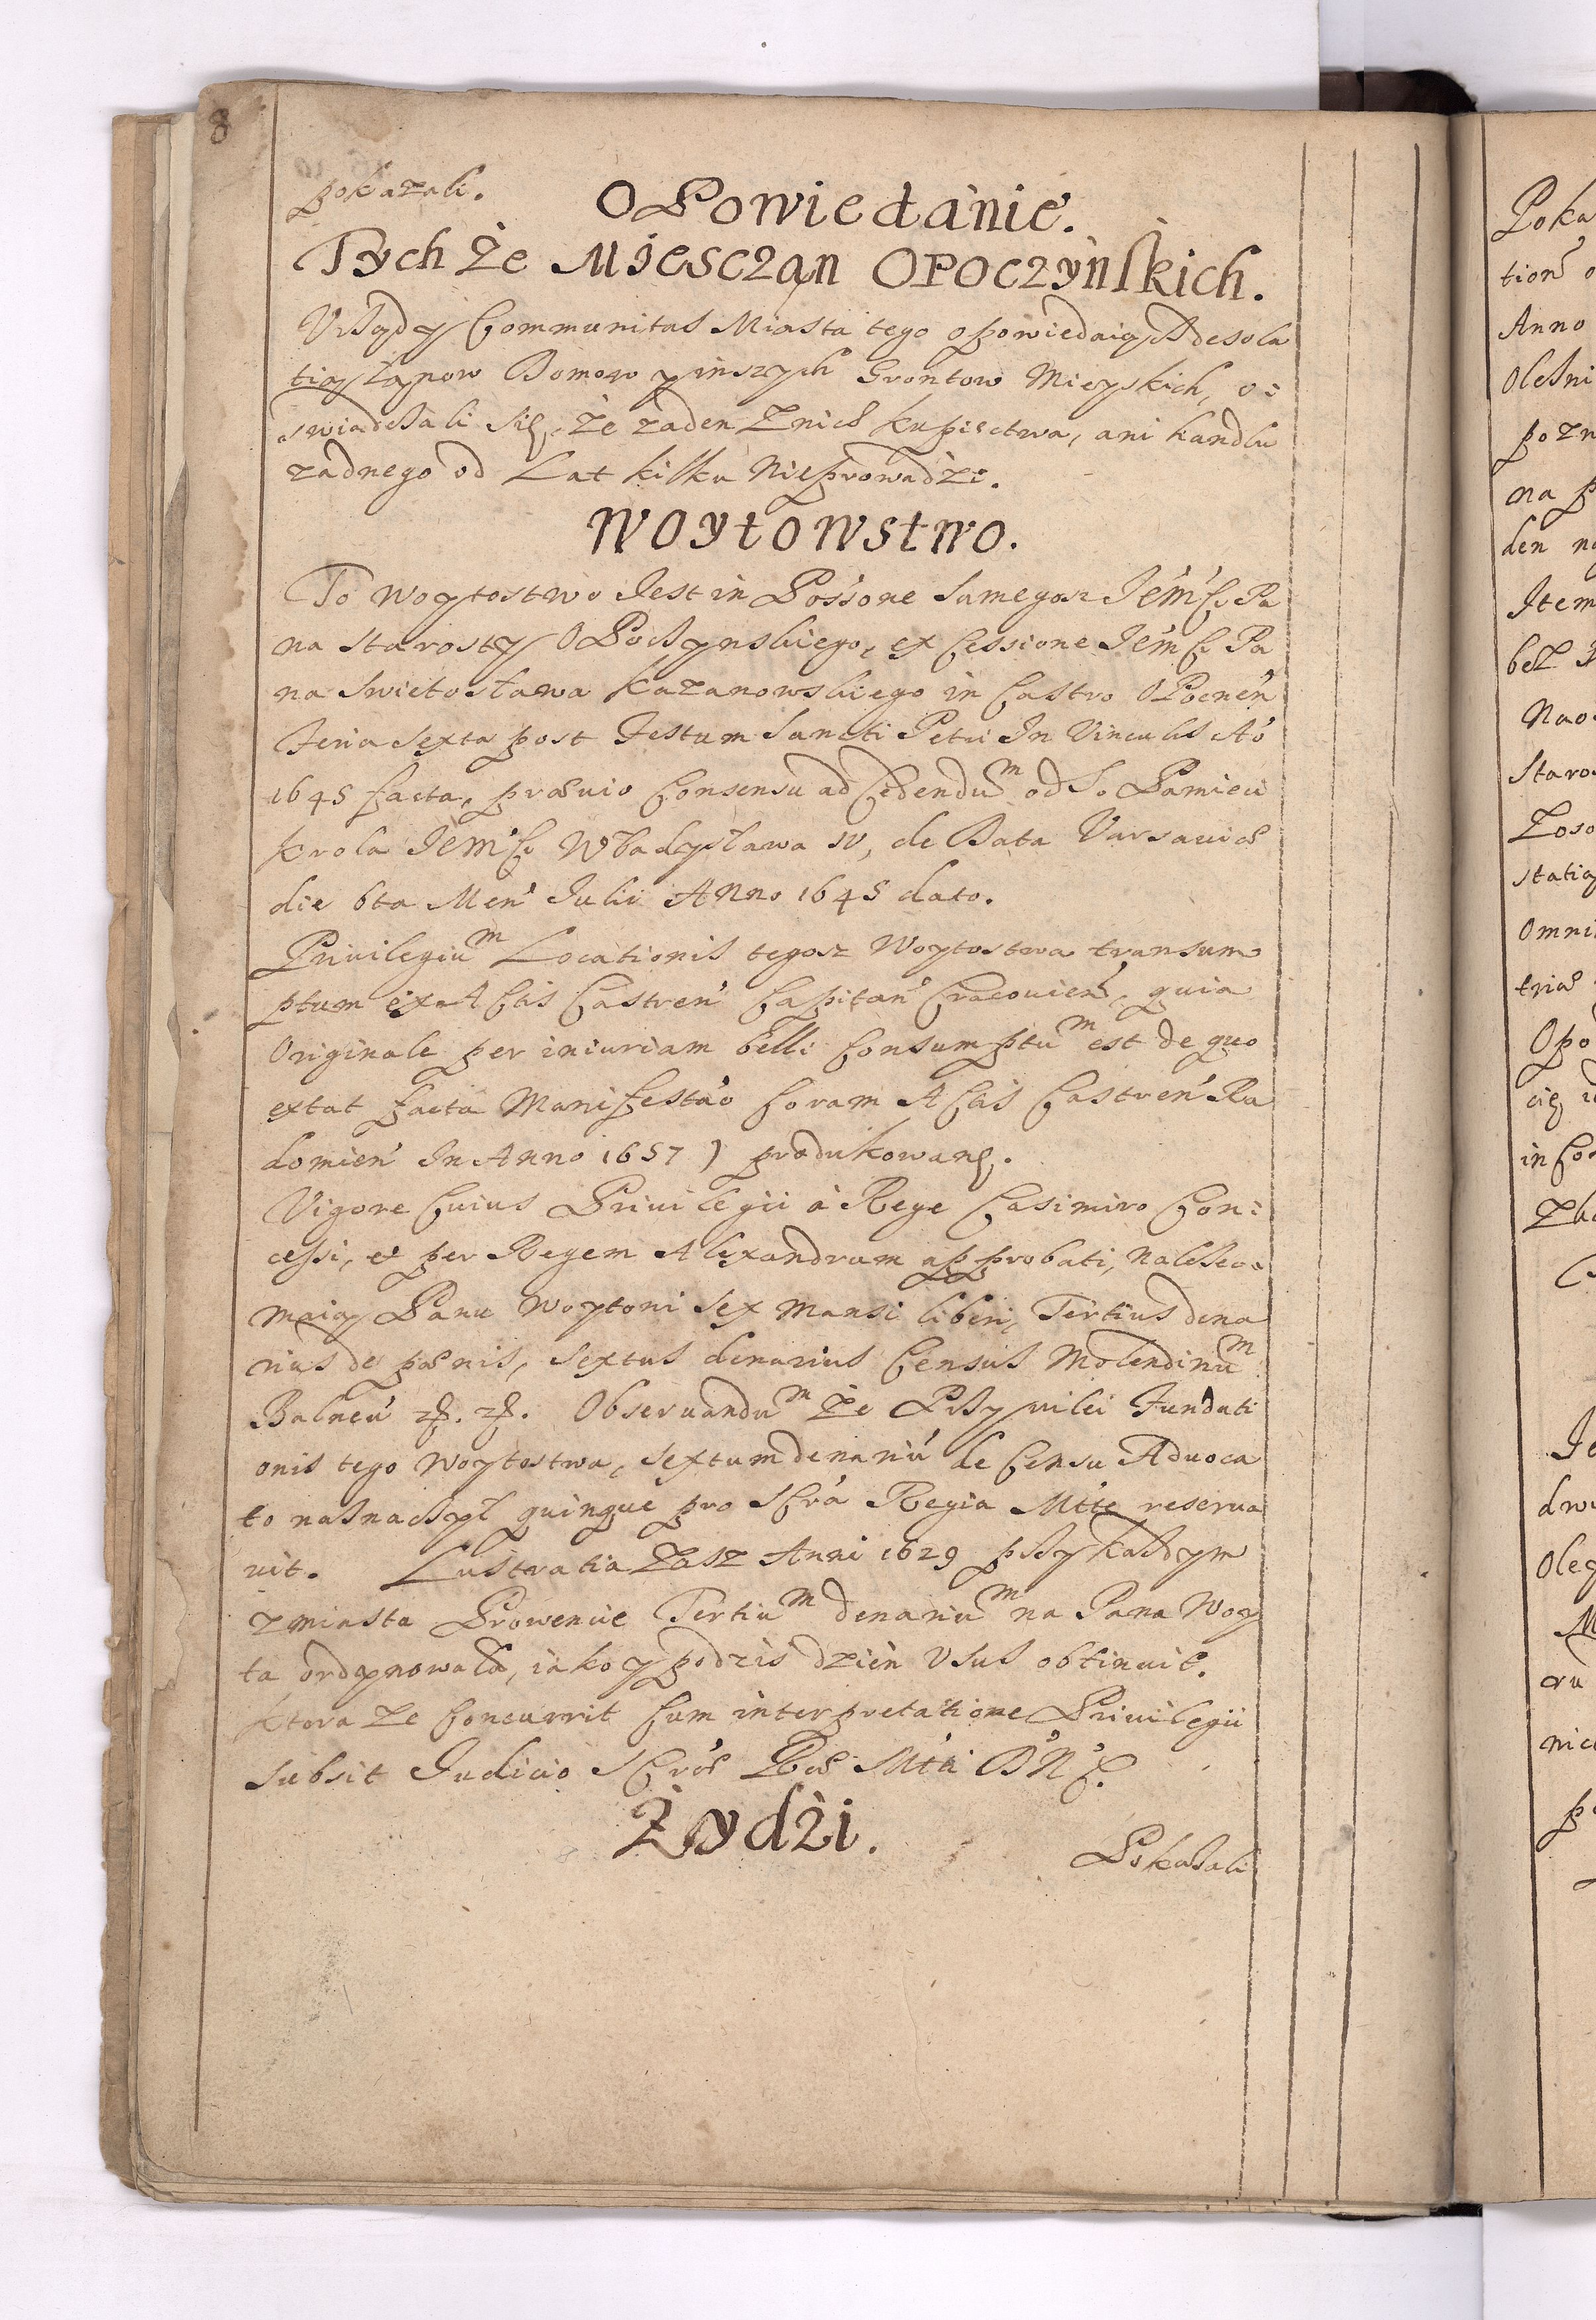 8
pokazali.
OPowiedanie.
Tych że Miesczan OPOCZyńskich.
Vrzędy Communitas Miasta tego opowiedaiąc desola
tią Łanow Domow y inszych Grontow Mieyskich, o:
swiadczali się, że zaden z nich kupiectwa, ani handlu
zadnego od Lat kilku nie prowadzi.
WOytowstwo.
To woytostwo Jest in Poss'one samegosz JE'm'Ci Pa
na starosty OPoczynskiego, ex Cessione JE'mCi Pa
na Swietosława Kazanowskiego in Castro OPocnen'
Feria sexta post Festum Sancti Petri In Vinculis A'o
1645 facta, præuio Consensu ad Cedendum od S. Pamieci
Krola JE'm'Ci Władysława IV, de Data Varsauiæ
die 6ta Men' Julii ANno 1645 dato.
Priuilegium Locationis tegosz Woytostwa transum
ptum ex ACtis Castren' Capitan' Cracouien', quia
Originale per iniuriam belli Consumptum est de quo
extat facta Manifesta'o Coram ACtis Castren' Ra
domien' In Anno 1657) produkowane.
Vigore Cuius Priuilegii à Rege Casimiro Con:
cessi, et per Regem Alexandrum approbati, należeć
maią Panu Woytowi sex mansi liberi, Tertius dena
rius de pœnis, sextus denarius Census Molendinum
Balneu' &. &. Obseruandum że Przywilei Fundati
onis tego Woytostwa, sextum denariu' de Censu Aduoca
to naznaczył quinque pro SCra' Regia M'tte reserua
uit. Lustratia zasz Anni 1629 przy każdym
z miasta Prowencie Tertium denarium na Pana Woy
ta ordynowała, iako y podzis dzień Vsus obtinuit.
Ktora że Concurrit Cum interpretatione Priuilegii
subsit Judicio SCræ' Ræ M'tti D'N'C.
Żydźi.
Pokazali